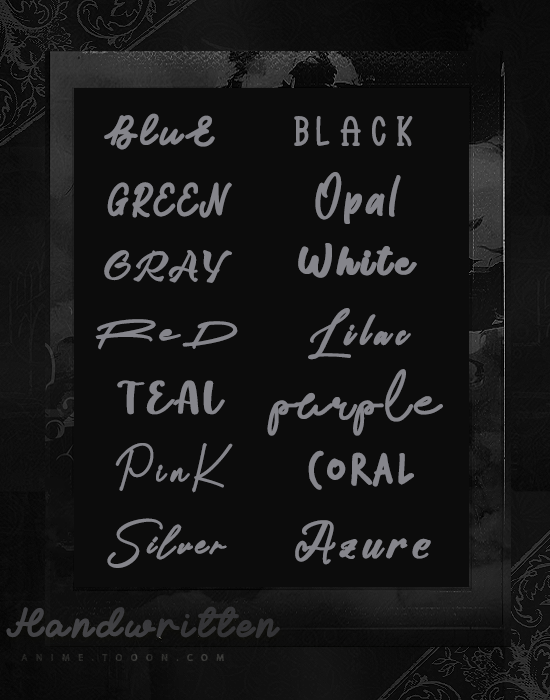 BluE BLACK
GREEN Opal
GRAY White
ReD Lilac
TEAL purple
PinK CORAL
Silver Azure
Handwritten
ANIME.TOOON.COM